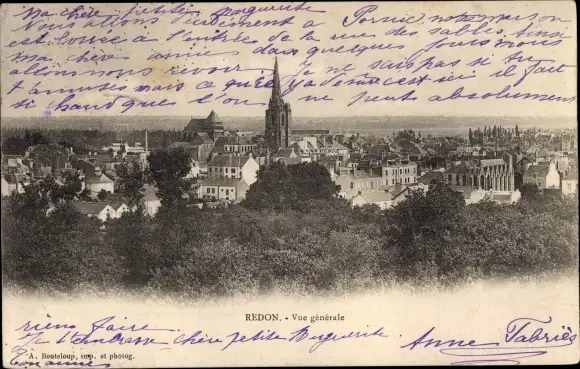 Ma chère petite Marguerite
Nous allons décidément a Pornic notre maison
est louée à l'entrée de la rue des sables. Ainsi
ma chère amie dans quelques jours nous
allons nous revoir. Je ne sais pas si
t'amuse mais ce qu'il y a de sur c'est ici il fait
si chaud que l'on ne peut absolument
REDON. - Vue générale
rien faire
Je t'embrasse chère petite Marguerite
Anne Fabriès
A. Bouteloup, imp. et photog.